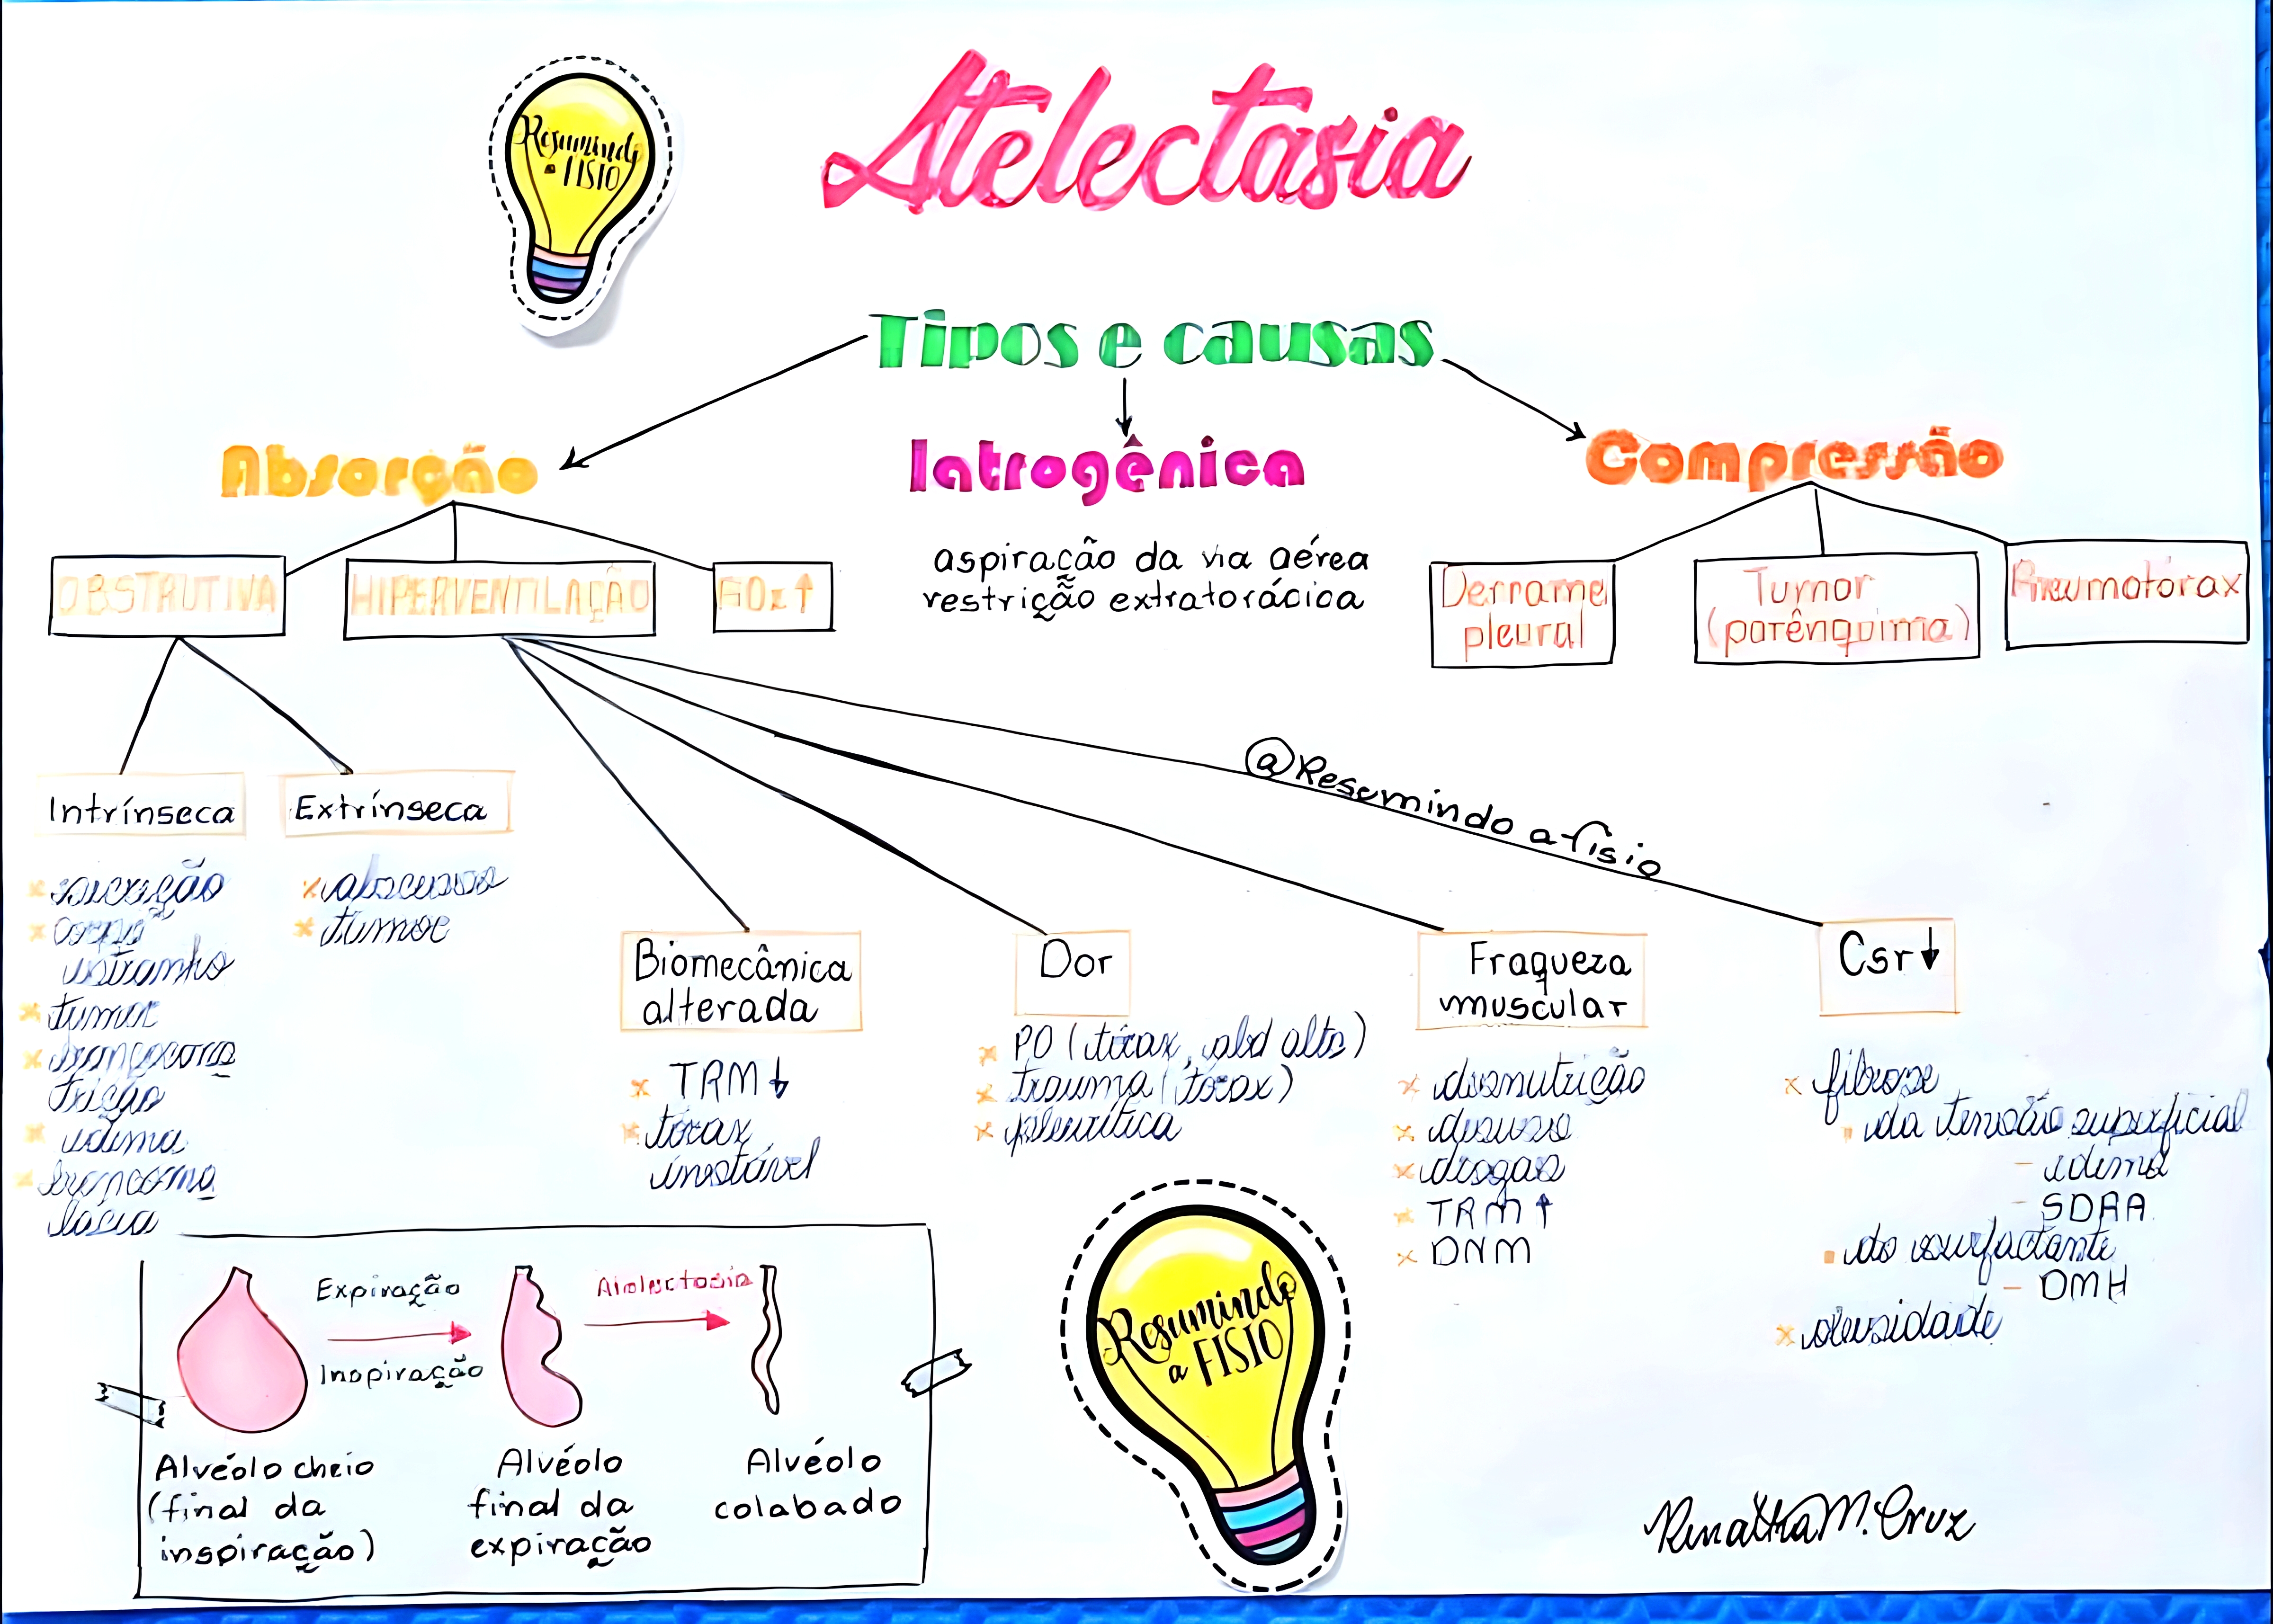 Resumindo
a FISIO
Atelectasia
Tipos e causas
Absorção
Iatrogênica
Compressão
OBSTRUTIVA
HIPERVENTILAÇÃO
FiO2↑
aspiração da via aérea
restrição extratorácica
Derrame
pleural
Tumor
(parênquima)
Pneumotórax
@Resumindo a fisio
Intrínseca
× secreção
× corpo
estranho
× tumor
× broncocons
trição
× edema
× broncoma
lácia
Extrínseca
× abscesso
× tumor
Biomecânica
alterada
× TRM↓
× tórax
instável
Dor
× PO (tórax, abd alto)
× trauma (tórax)
× pleurítica
Fraqueza
muscular
× desnutrição
× desuso
× drogas
× TRM↑
× DNM
Csr↓
× fibrose
▪ da tensão superficial
– edema
– SDRA
▪ do surfactante
– DMH
× obesidade
Expiração
Inspiração
Atelectasia
Alvéolo cheio
(final da
inspiração)
Alvéolo
final da
expiração
Alvéolo
colabado
Resumindo
a FISIO
M. Cruz